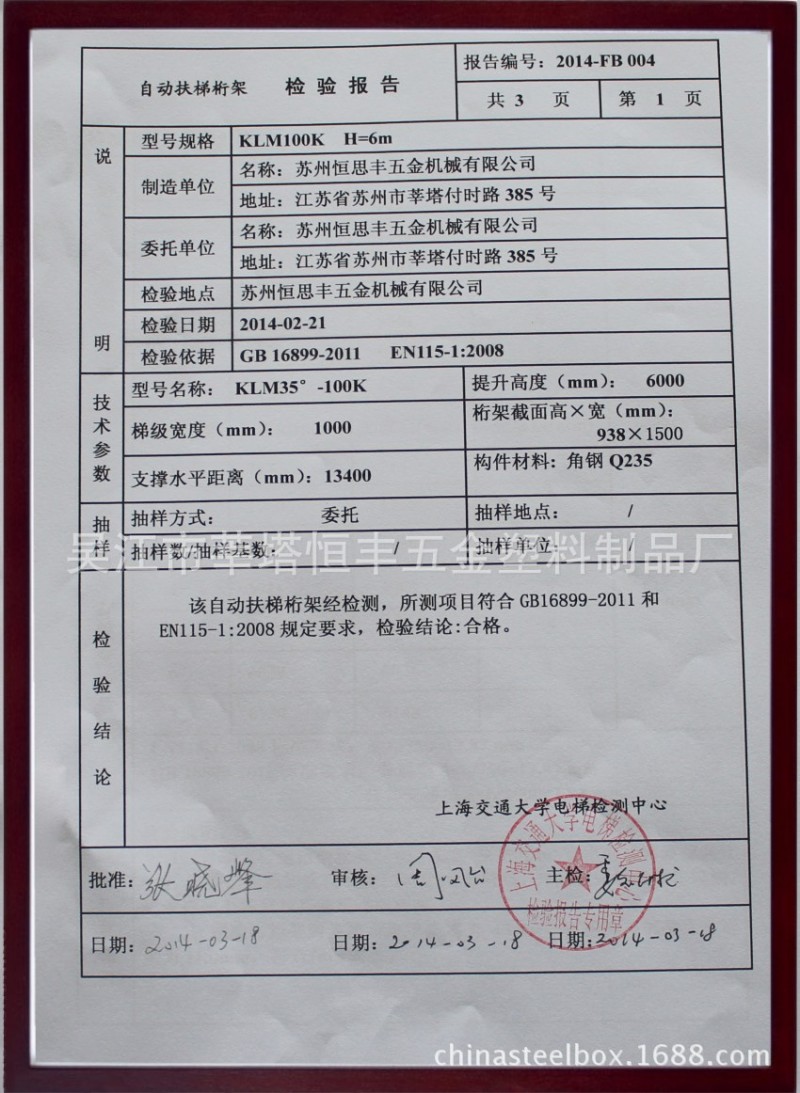 自动扶梯桁架 检验报告
报告编号：2014-FB 004
共 3 页 第 1 页
说明
型号规格 KLM100K H=6m
制造单位 名称：苏州恒思丰五金机械有限公司
地址：江苏省苏州市莘塔付时路 385 号
委托单位 名称：苏州恒思丰五金机械有限公司
地址：江苏省苏州市莘塔付时路 385 号
检验地点 苏州恒思丰五金机械有限公司
检验日期 2014-02-21
检验依据 GB 16899-2011 EN115-1:2008
技术参数
型号名称： KLM35°-100K 提升高度（mm）： 6000
梯级宽度（mm）： 1000 桁架截面高×宽（mm）：
938×1500
支撑水平距离（mm）：13400 构件材料：角钢 Q235
抽样
抽样方式： 委托 抽样地点： /
抽样数/抽样基数： / 抽样单位： /
吴江市莘塔恒丰五金塑料制品厂
检验结论
该自动扶梯桁架经检测，所测项目符合 GB16899-2011 和
EN115-1:2008 规定要求，检验结论:合格。
上海交通大学电梯检测中心
上海交通大学电梯检测中心
检验报告专用章
批准：张晓峰 审核：周 主检：
日期：2014-03-18 日期：2014-03-18 日期：2014-03-18
chinasteelbox.1688.com